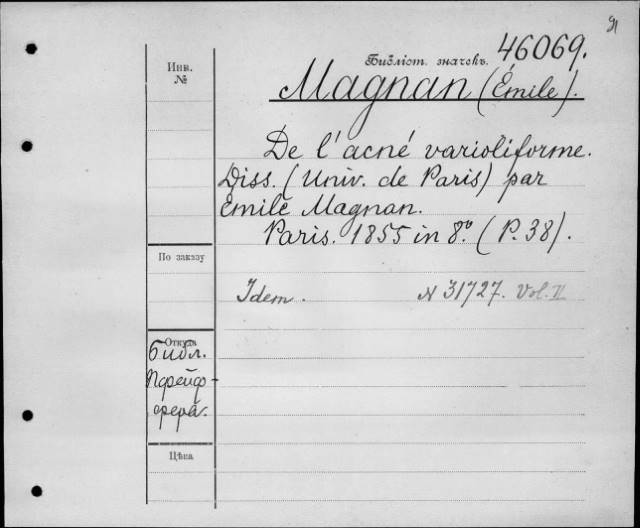 Инв.
№
Библіот. значекъ. 46069.
Magnan (Émile).
De l'acné varioliforme.
Diss. (Univ. de Paris) par
Émile Magnan.
Paris. 1855 in 8.º (P. 38).
По заказу
Idem. N 31727. Vol. II
Откуда
Библ.
Пфейф-
фера.
Цѣна